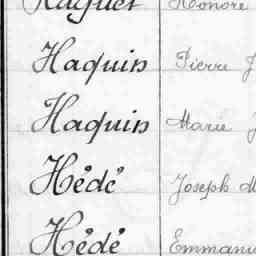 Haguet Honoré
Haquin Pierre J
Haquin Marie J
Hédé Joseph M
Hédé Emmanu